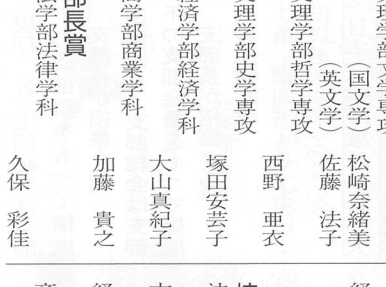 文理学部文学専攻
(国文学) 松崎奈緒美
(英文学) 佐藤 法子
文理学部哲学専攻
西野 亜衣
文理学部史学専攻
塚田安芸子
経済学部経済学科
大山真紀子
商学部商業学科
加藤 貴之
部長賞
法学部法律学科
久保 彩佳